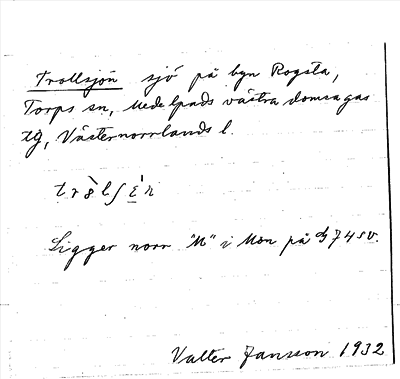 Trollsjön sjö på byn Rogsta,
Torps sn, Medelpads västra domsagas
tg, Västernorrlands l.
Ligger norr "M" i Mon på 74 sv.
Valter Jansson 1932